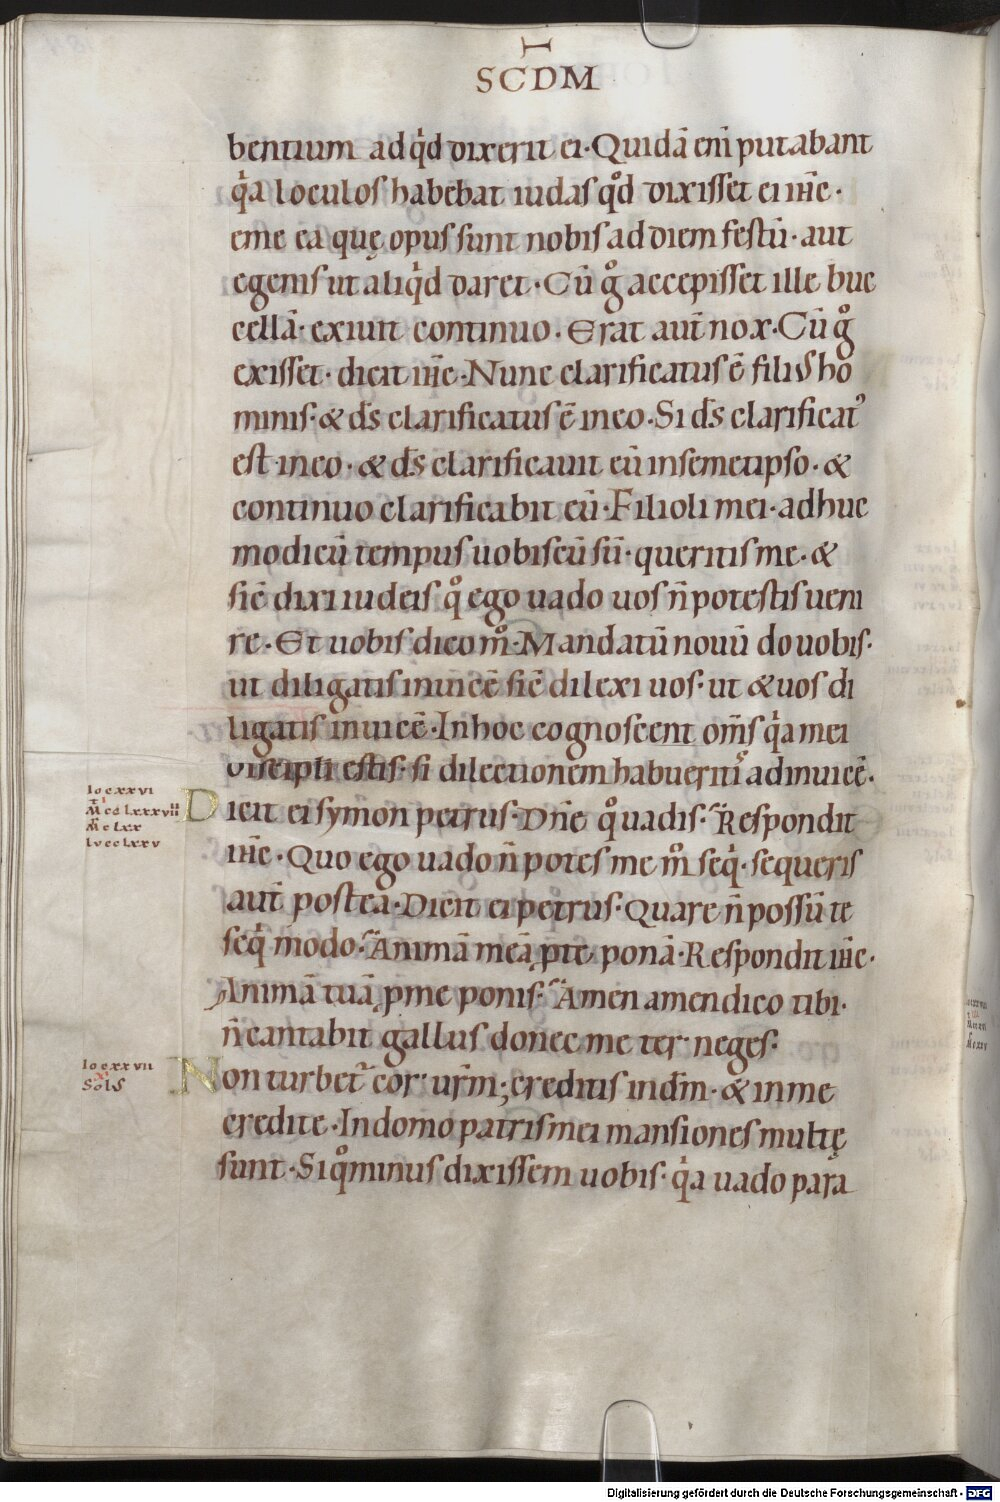 SCDM
bentium ad qđ dixerit ei · Quidā eni̅ putabant
qa loculos habebat iudas qd dixisset ei ihc ·
eme ea quę opus sunt nobis ad diem festū · aut
egenis ut aliqd daret · Cū g accepisset ille buc
cellā · exiuit continuo · Erat aut̄ nox · Cū g
exisset · dicit ihc · Nunc clarificatus ē filius ho
minis · & d̄s clarificatus ē in eo · Si d̄s clarificat᾿
est in eo · & d̄s clarificauit eū in semetipso · &
continuo clarificabit eū · Filioli mei · adhuc
modicū tempus uobiscū sū · queritis me · &
sic̄ dixi iudeis q ego uado uos n̄ potestis ueni
re · Et uobis dico m̊ · Mandatū nouū do uobis ·
ut diligatis inuicē sic̄ dilexi uos · ut & uos di
ligatis inuicē · In hoc cognoscent om̄s qa mei
discipli estis · si dilectionem habueritis ad inuicē ·
Dicit ei symon petrus · Dn̄e q uadis · Respondit
ihc · Quo ego uado n̄ potes me m̊ seq · sequeris
aut̄ postea · Dicit ei petrus · Quare n̄ possū te
seq modo · Animā meā p te ponā · Respondit ihc ·
Animā tuā p me ponis · Amen amen dico tibi ·
n̄ cantabit gallus donec me ter neges ·
Non turbet᾿ cor ur̄m ; creditis in dm̄ · & in me
credite · In domo patris mei mansiones multę
sunt · Si q minus dixissem uobis · qa uado para
Io cxxvi
M cclxxxvii
M clxx
Lv cclxxv
Io cxxvii
Sols
Digitalisierung gefördert durch die Deutsche Forschungsgemeinschaft - DFG